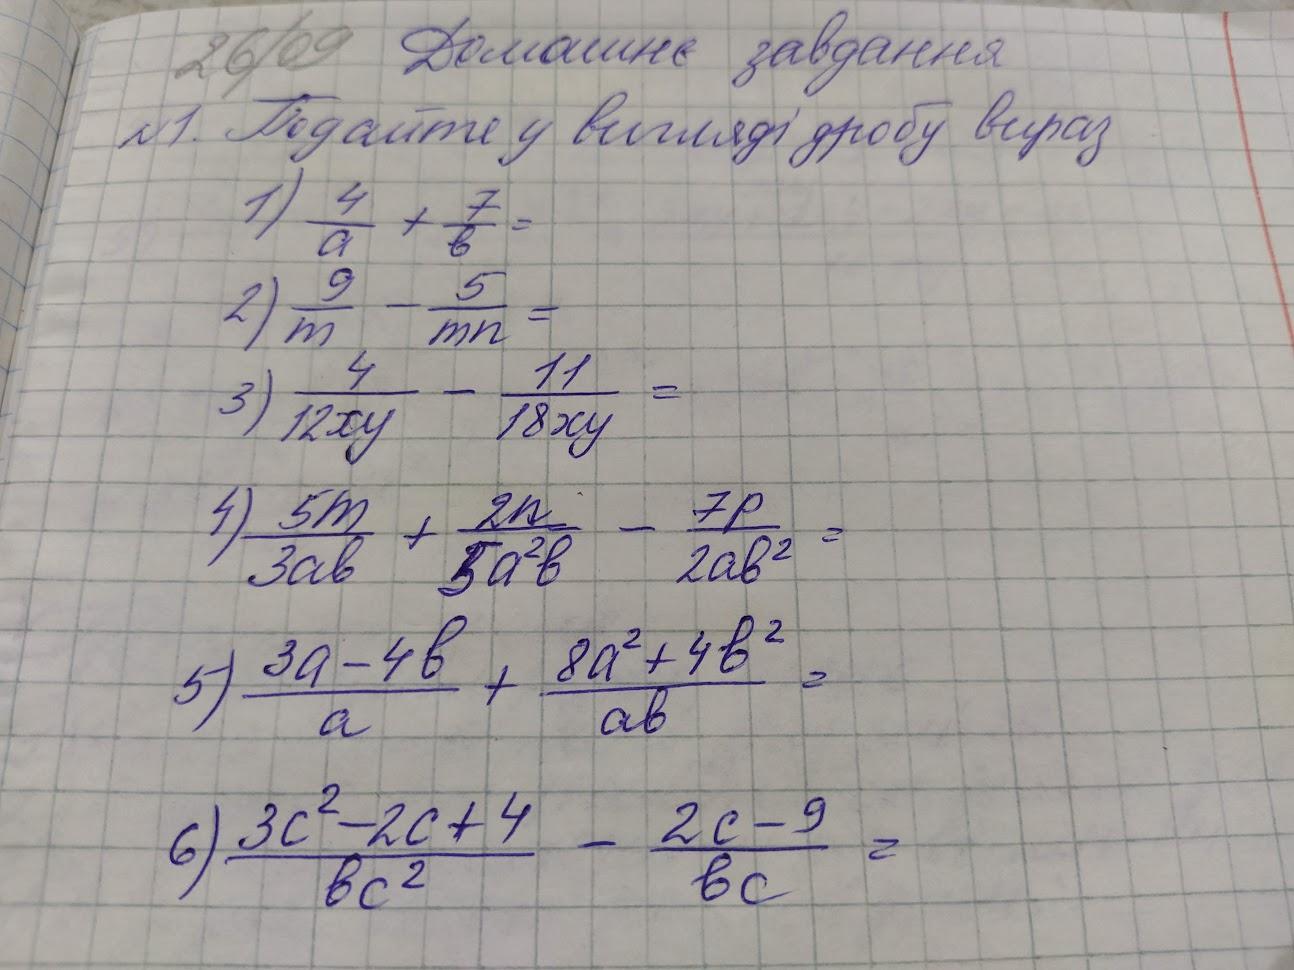 26/09 Домашнє завдання
№1. Подайте у вигляді дробу вираз
1) 4/a + 7/b =
2) 9/m - 5/mn =
3) 4/12xy - 11/18xy =
4) 5m/3ab + 2n/5a²b - 7p/2ab² =
5) 3a-4b/a + 8a²+4b²/ab =
6) 3c²-2c+4/bc² - 2c-9/bc =